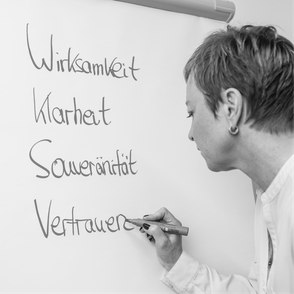 Wirksamkeit
Klarheit
Souveränität
Vertrauen